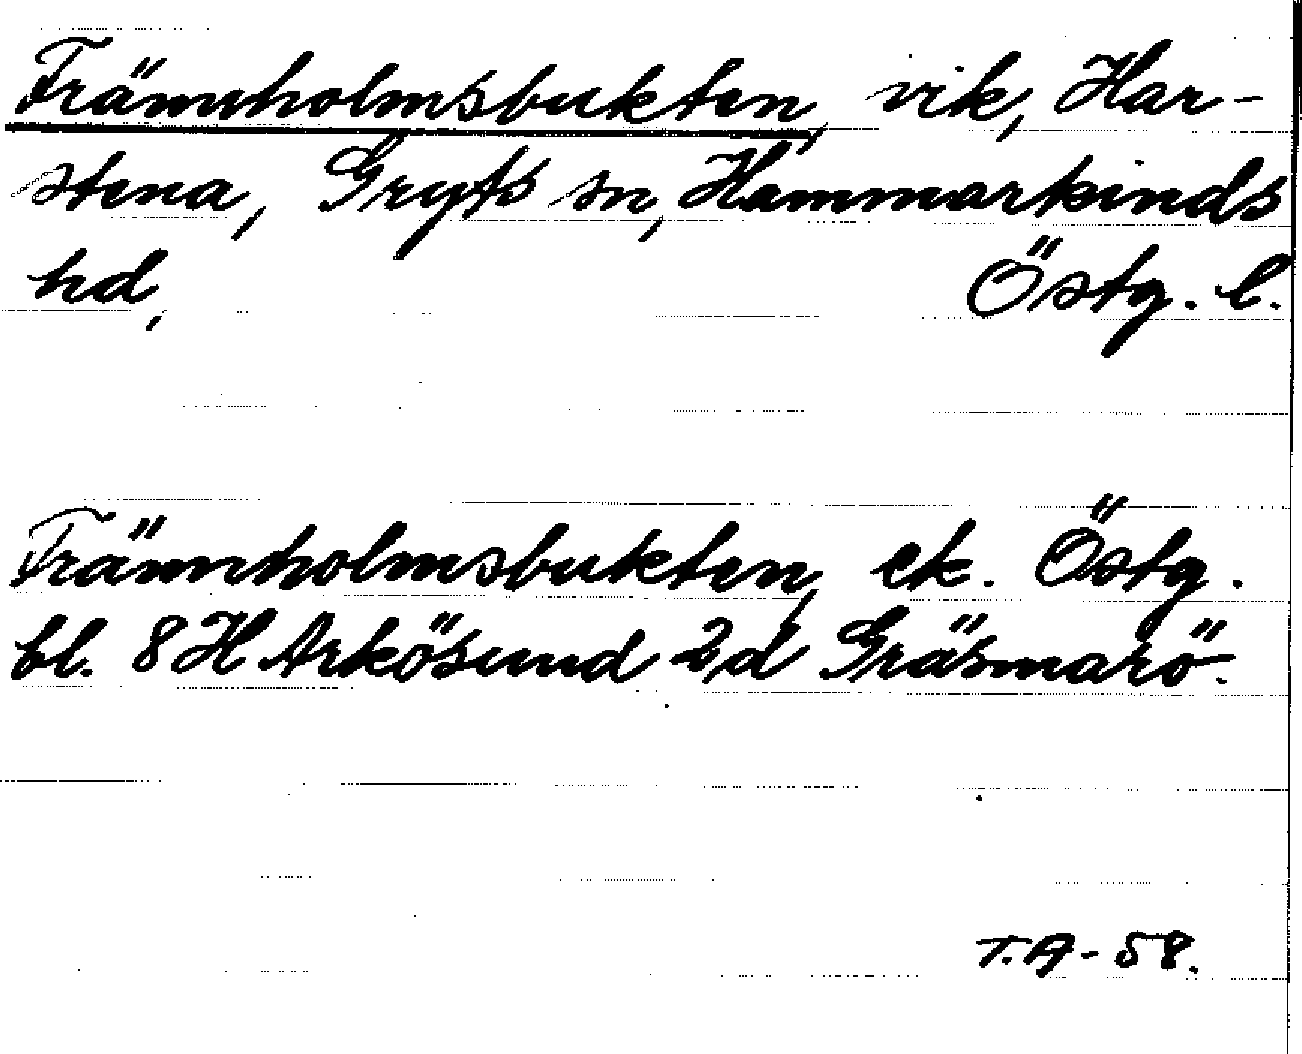 Främnholmsbukten, vik, Har-
stena, Gryts sn, Hammarkinds
hd, Östg. l.
Främnholmsbukten, ek. Östg.
bl. 8 H Arkösund 2d Gräsmarö.
T.A-58.